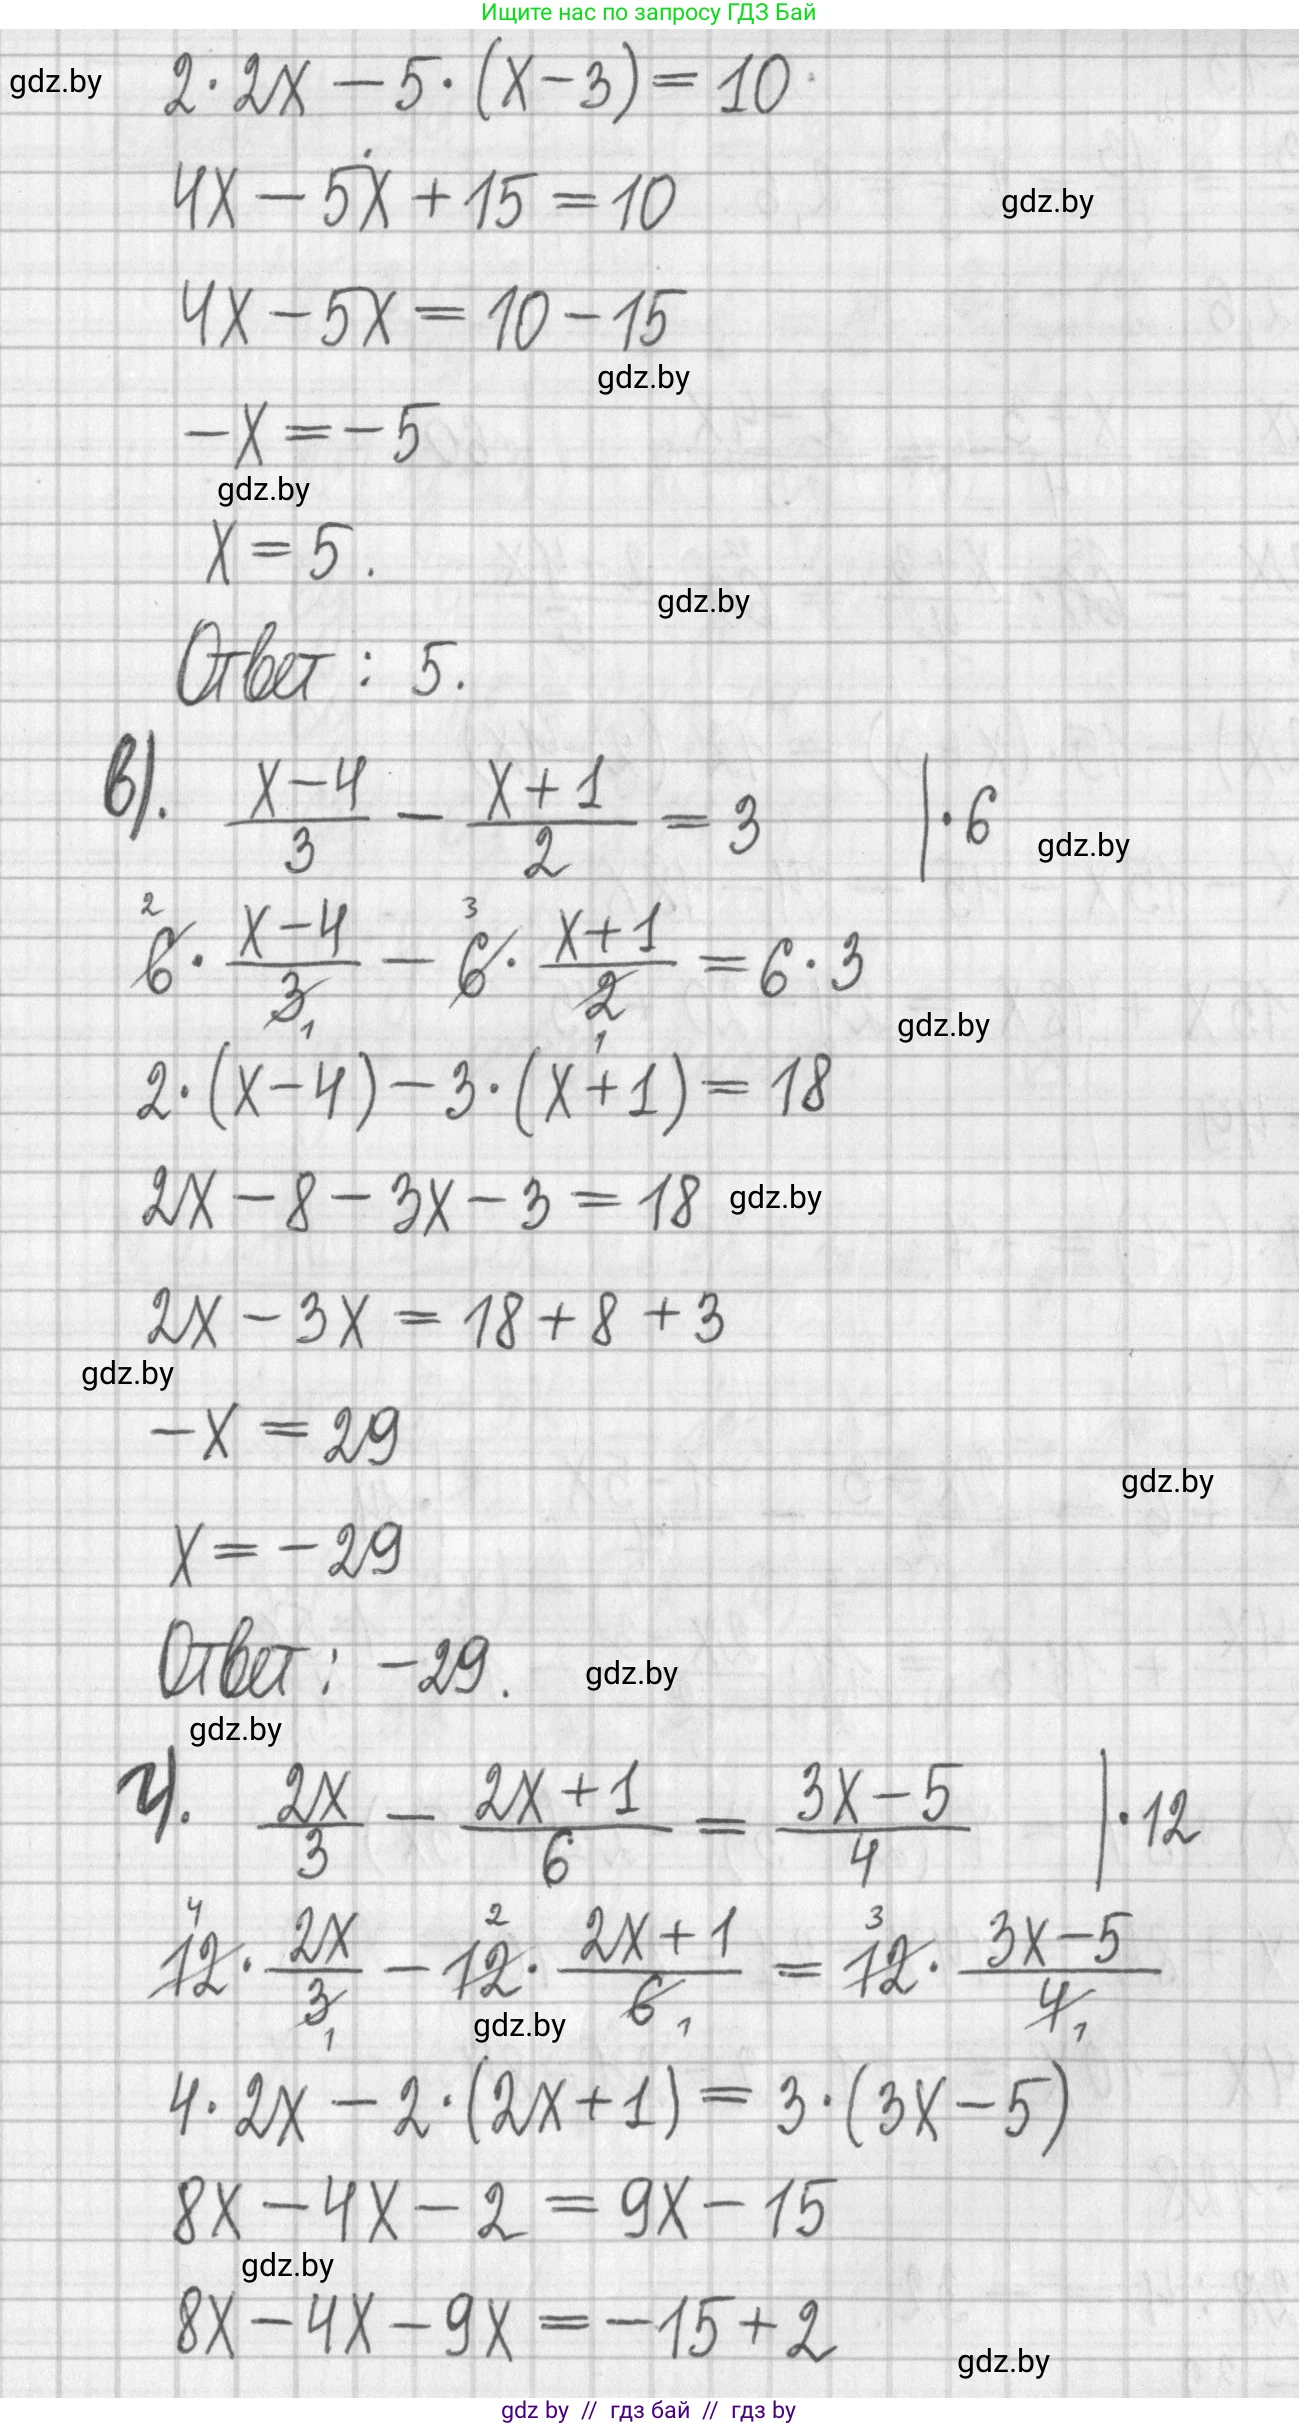 Ищите нас по запросу ГДЗ Бай
gdz.by
2·2x − 5·(x−3) = 10
4x − 5x + 15 = 10
gdz.by
4x − 5x = 10 − 15
gdz.by
−x = −5
gdz.by
x = 5.
gdz.by
Ответ: 5.
в). (x−4)/3 − (x+1)/2 = 3 | ·6
gdz.by
2 3
6 · (x−4)/3 − 6 · (x+1)/2 = 6·3
1 1
gdz.by
2·(x−4) − 3·(x+1) = 18
2x − 8 − 3x − 3 = 18
gdz.by
2x − 3x = 18 + 8 + 3
gdz.by
−x = 29
gdz.by
x = −29
Ответ: −29.
gdz.by
gdz.by
г). 2x/3 − (2x+1)/6 = (3x−5)/4 | ·12
4 2 3
12 · 2x/3 − 12 · (2x+1)/6 = 12 · (3x−5)/4
1 1 1
gdz.by
4·2x − 2·(2x+1) = 3·(3x−5)
8x − 4x − 2 = 9x − 15
gdz.by
8x − 4x − 9x = −15 + 2
gdz.by
gdz by // гдз бай // гдз by